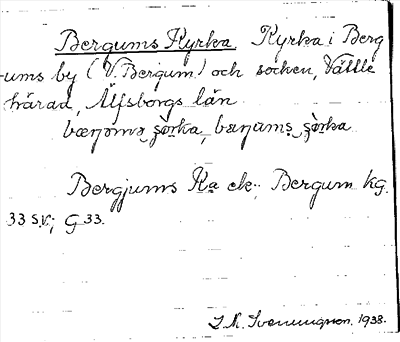 Bergums Kyrka. Kyrka i Berg
-ums by (V. Bergum) och socken, Vättle
härad, Älfsborgs län
bæŋomə ʂòrka, bæŋums ʂòrka
Bergjums Ka ek.; Bergum kg.
33 s.v.; G 33.
1938.